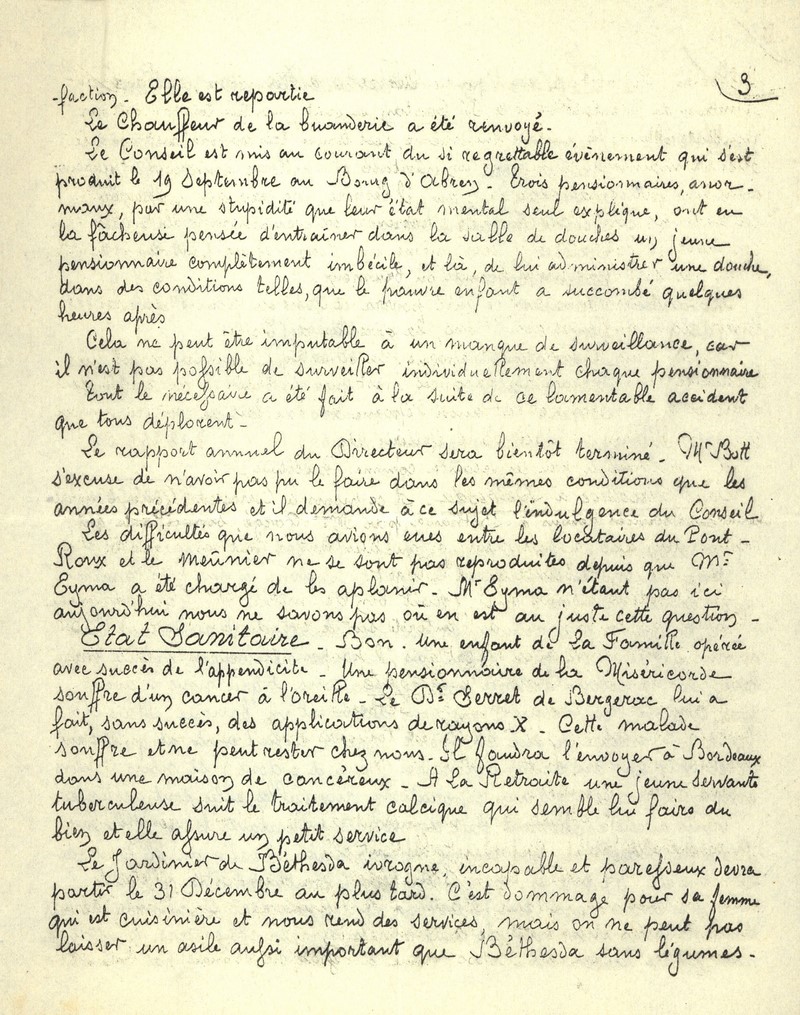 3
-faction. Elle est repartie
Le Chauffeur de la buanderie a été renvoyé.
Le Conseil est mis au courant du si regrettable évènement qui s'est
produit le 19 Septembre au Bourg d'Abren. Trois pensionnaires, anor-
maux, par une stupidité que leur état mental seul explique, ont eu
la fâcheuse pensée d'entraîner dans la salle de douches un jeune
pensionnaire complètement imbécile, et là, de lui administrer une douche,
dans des conditions telles, que le pauvre enfant a succombé quelques
heures après
Cela ne peut être imputable à un manque de surveillance, car
il n'est pas possible de surveiller individuellement chaque pensionnaire
Tout le nécessaire a été fait à la suite de ce lamentable accident
que tous déplorent -
Le rapport annuel du Directeur sera bientôt terminé. Mr Bott
s'excuse de n'avoir pas pu le faire dans les mêmes conditions que les
années précédentes et il demande à ce sujet l'indulgence du Conseil
Les difficultés que nous avions eues entre les locataires du Pont-
Roux et le meûnier ne se sont pas reproduites depuis que Mr
Eyma a été chargé de les aplanir. Mr Eyma n'étant pas ici
aujourd'hui nous ne savons pas où en est au juste cette question -
Etat Sanitaire. Bon. Une enfant de La Famille opérée
avec succès de l'appendicite. Une pensionnaire de la Miséricorde
souffre d'un cancer à l'oreille. Le Dr Serret de Bergerac lui a
fait, sans succès, des applications de rayons X. Cette malade
souffre et ne peut rester chez nous. Il faudra l'envoyer à Bordeaux
dans une maison de cancéreux. A La Retraite une jeune servante
tuberculeuse suit le traitement calcique qui semble lui faire du
bien et elle assure un petit service
Le Jardinier de Béthesda ivrogne, incapable et paresseux devra
partir le 31 Décembre au plus tard. C'est dommage pour sa femme
qui est cuisinière et nous rend des services, mais on ne peut pas
laisser un asile aussi important que Béthesda sans légumes.